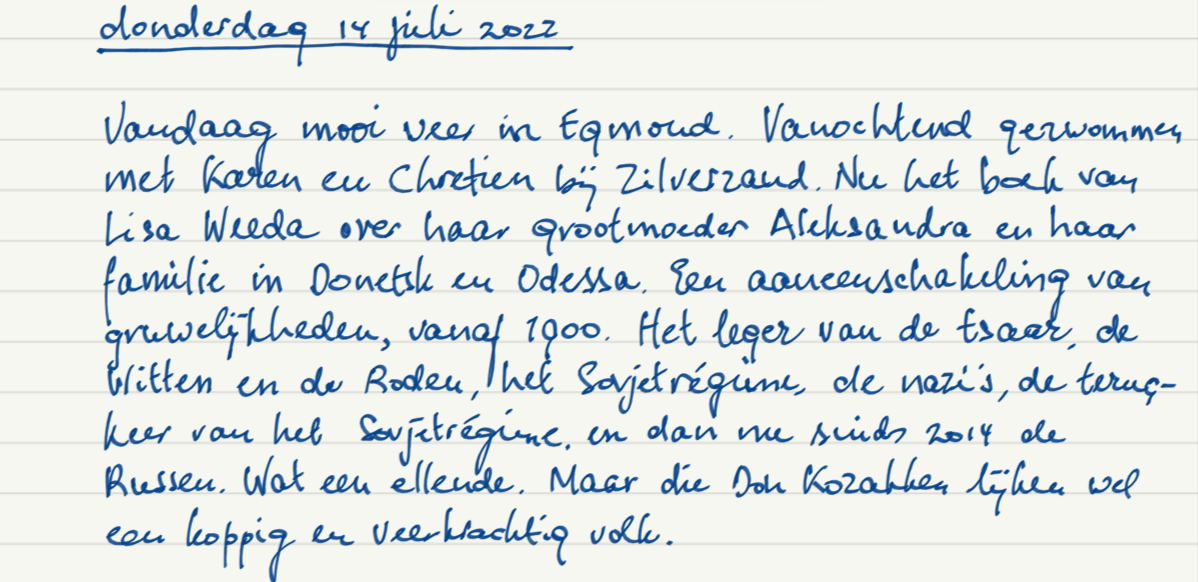 donderdag 14 juli 2022
Vandaag mooi weer in Egmond. Vanochtend gezwommen
met Karen en Chretien bij Zilverzand. Nu het boek van
Lisa Weeda over haar grootmoeder Aleksandra en haar
familie in Donetsk en Odessa. Een aaneenschakeling van
gruwelijkheden, vanaf 1900. Het leger van de tsaar, de
Witten en de Roden, het Sovjetrégime, de nazi's, de terug-
keer van het Sovjetrégime, en dan nu sinds 2014 de
Russen. Wat een ellende. Maar die Don Kozakken lijken wel
een koppig en veerkrachtig volk.